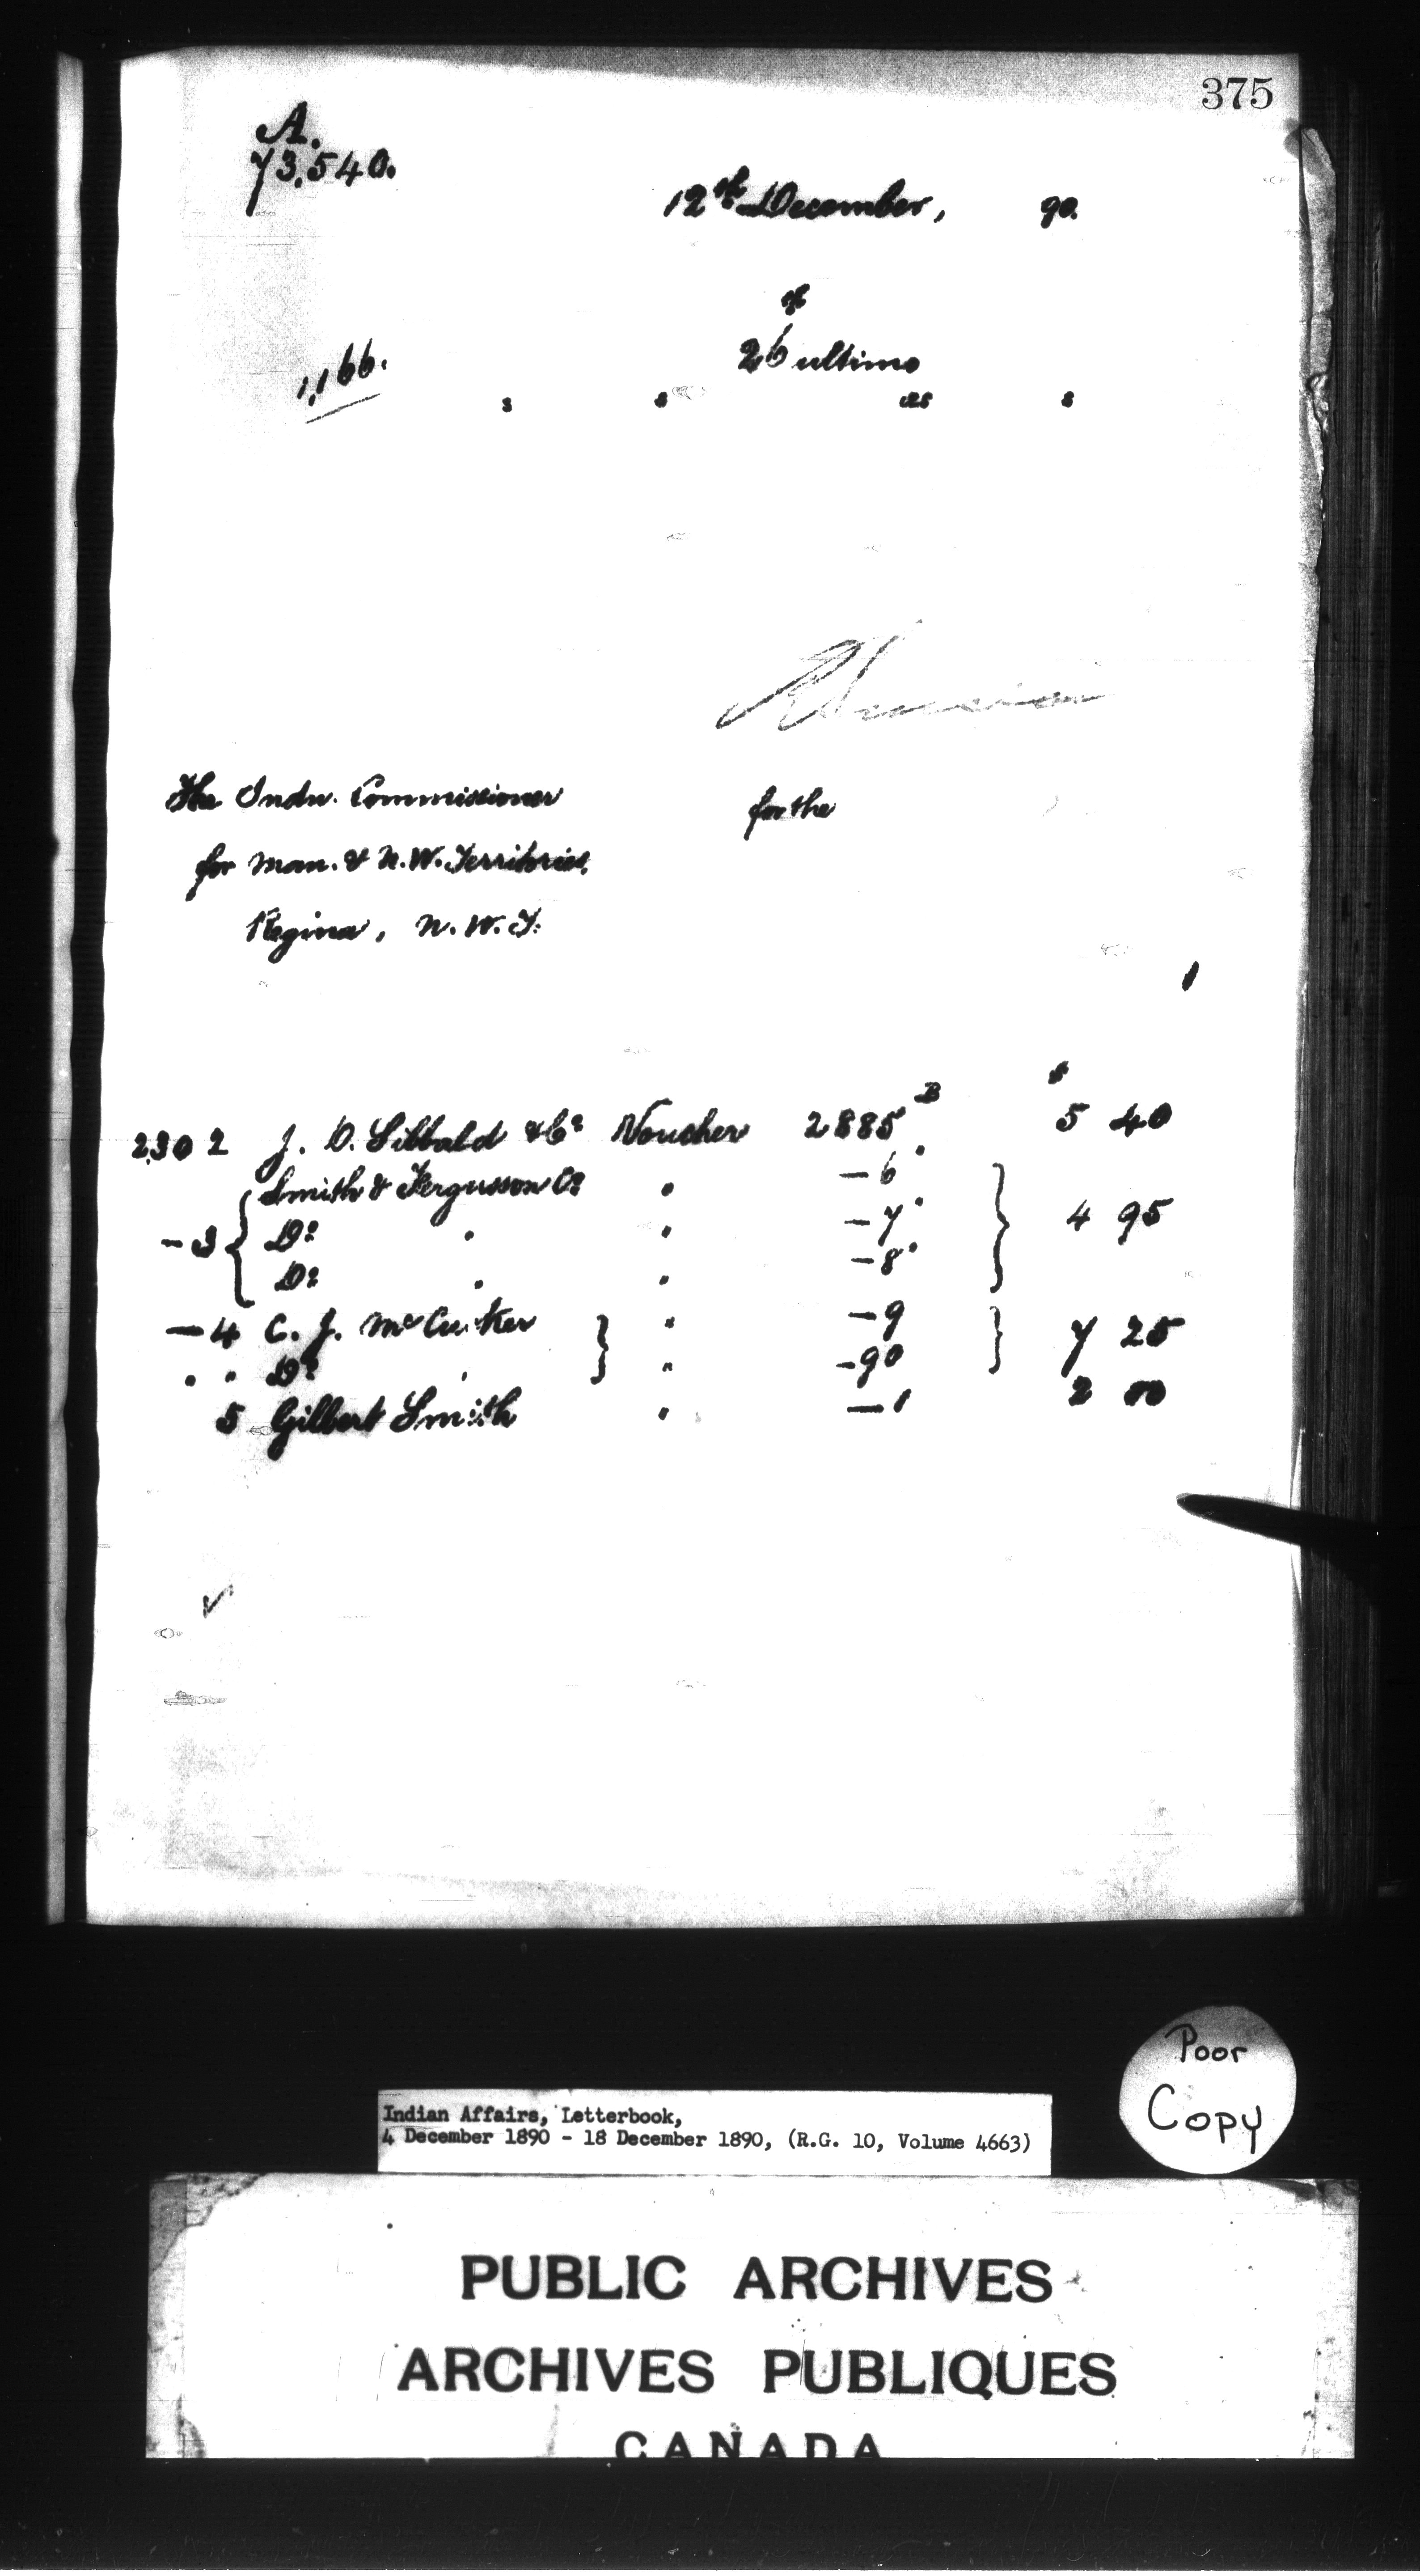 375
A.
73.540.
12th December, 90.
th
26 ultimo
1,166.
s s es s
The Indn. Commissioner for the
for Man. & N.W. Territories,
Regina, N.W.T.
1
$
2302 J. D. Sibbald & Co Voucher 2885 B 5 40
Smith & Fergusson Co " — 6 "
— 3 { Do " " — 7 " } 4 95
Do " " — 8 "
— 4 C. J. McCusker } " — 9 } 7 25
" " Do " " — 90
5 Gilbert Smith " — 1 2 00
Poor
Copy
Indian Affairs, Letterbook,
4 December 1890 - 18 December 1890, (R.G. 10, Volume 4663)
PUBLIC ARCHIVES
ARCHIVES PUBLIQUES
CANADA